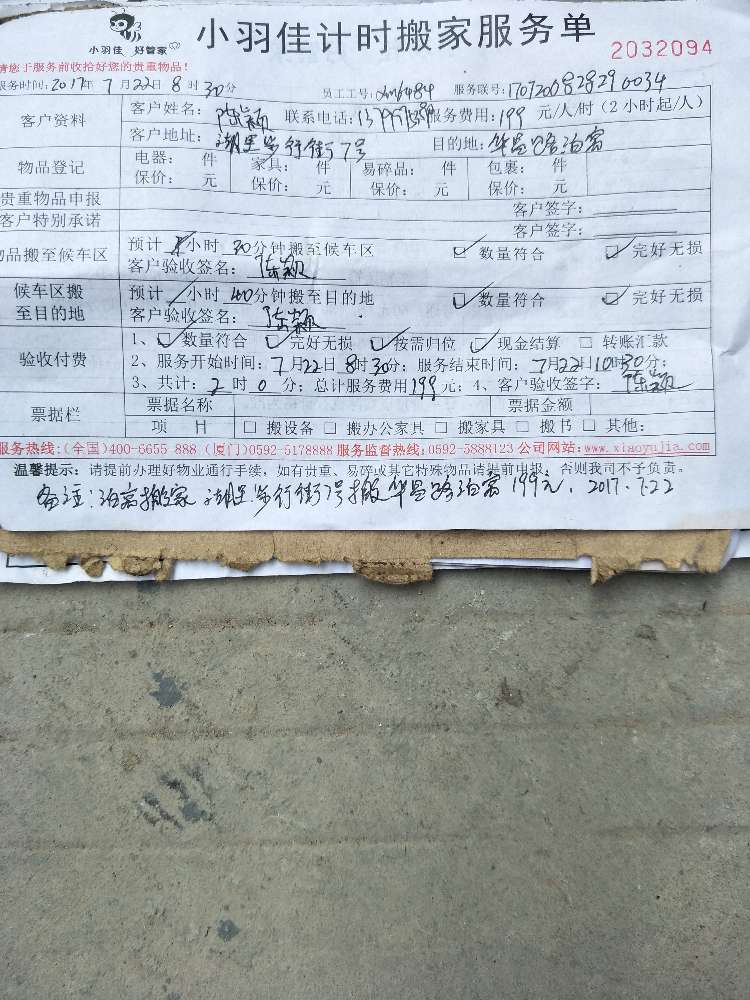 小羽佳 好管家
小羽佳计时搬家服务单
2032094
请您于服务前收拾好您的贵重物品!
服务时间:2017年7月22日8时30分 员工工号: 服务联号:
客户资料 客户姓名:陈颖 联系电话: 服务费用:199元/人/时(2小时起/人)
客户地址:湖里步行街7号 目的地:华昌路泊寓
物品登记 电器: 件 家具: 件 易碎品: 件 包裹: 件
保价: 元 保价: 元 保价: 元 保价: 元
贵重物品申报 客户签字:
客户特别承诺 客户签字:
物品搬至候车区 预计 小时30分钟搬至候车区 ☑数量符合 ☑完好无损
客户验收签名:陈颖
候车区搬至目的地 预计 小时40分钟搬至目的地 ☑数量符合 ☑完好无损
客户验收签名:陈颖
验收付费 1、☑数量符合 ☑完好无损 ☑按需归位 ☑现金结算 □转账汇款
2、服务开始时间:7月22日8时30分;服务结束时间:7月22日10时30分;
3、共计:2时0分;总计服务费用199元;4、客户验收签字:陈颖
票据栏 票据名称 票据金额
项 目 □搬设备 □搬办公家具 □搬家具 □搬书 □其他:
服务热线:(全国)400-6655 888 (厦门)0592-5178888 服务监督热线:0592-5888123 公司网站:www.xiaoyujia.com
温馨提示:请提前办理好物业通行手续,如有贵重、易碎或其它特殊物品请提前申报,否则我司不予负责。
备注:泊寓搬家 湖里步行街7号搬华昌路泊寓199元.2017.7.22